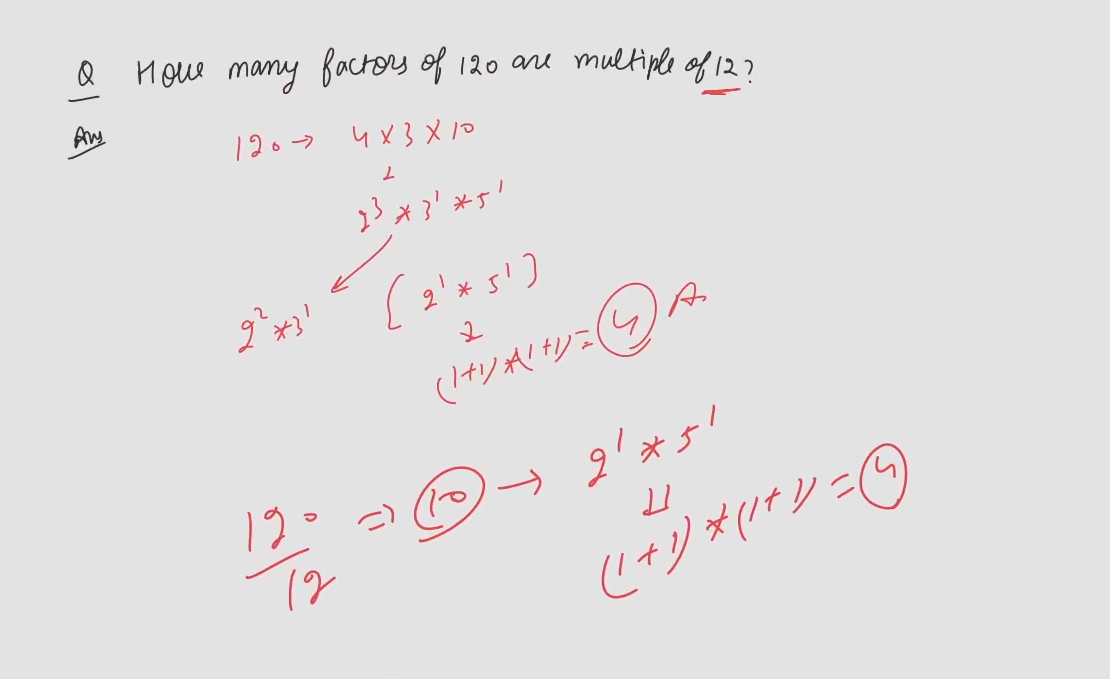 Q How many factors of 120 are multiple of 12?
Ans
120 → 4 x 3 x 10
2³ * 3¹ * 5¹
2² * 3¹ [2¹ * 5¹]
(1+1) * (1+1) = 4 A
120/12 ⇒ 10 → 2¹ * 5¹
(1+1) * (1+1) = 4